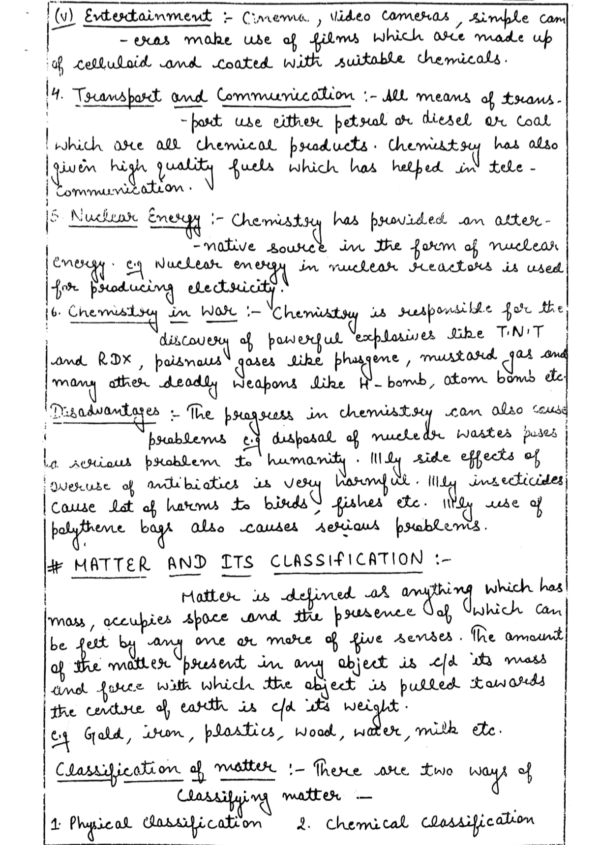 (v) Entertainment :- Cinema, video cameras, simple cam
- eras make use of films which are made up
of celluloid and coated with suitable chemicals.
4. Transport and Communication :- All means of trans-
- port use either petrol or diesel or coal
which are all chemical products. Chemistry has also
given high quality fuels which has helped in tele -
communication.
5. Nuclear Energy :- Chemistry has provided an alter-
- native source in the form of nuclear
energy. e.g Nuclear energy in nuclear reactors is used
for producing electricity.
6. Chemistry in War :- Chemistry is responsible for the
discovery of powerful explosives like T.N.T
and RDX, poisnous gases like phosgene, mustard gas and
many other deadly weapons like H-bomb, atom bomb etc.
Disadvantages :- The progress in chemistry can also cause
problems e.g disposal of nuclear wastes poses
a serious problem to humanity. Illly side effects of
overuse of antibiotics is very harmful. Illly insecticides
cause lot of harms to birds, fishes etc. Illly use of
polythene bags also causes serious problems.
# MATTER AND ITS CLASSIFICATION :-
Matter is defined as anything which has
mass, occupies space and the presence of which can
be felt by any one or more of five senses. The amount
of the matter present in any object is c/d its mass
and force with which the object is pulled towards
the centre of earth is c/d its weight.
e.g Gold, iron, plastics, wood, water, milk etc.
Classification of matter :- There are two ways of
Classifying matter —
1. Physical classification 2. Chemical classification